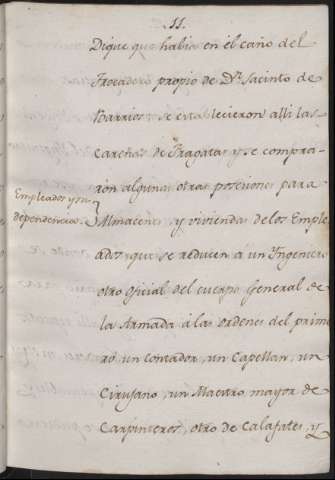 11.
Dique que habia en el caño del
Trocadero propio de Dn. Jacinto de
Barrios: se establecieron alli las
Careñas de Fragatas y se compra-
ron algunas otras posesiones para
Empleados y su
dependencia.
Almacenes y viviendas de los Emple
ados que se reducen á un Ingeniero
otro Oficial del cuerpo General de
la Armada á las ordenes del prime
ro un contador, un Capellan, un
Cirujano, un Maestro mayor de
Carpinteros, otro de Calafates, y